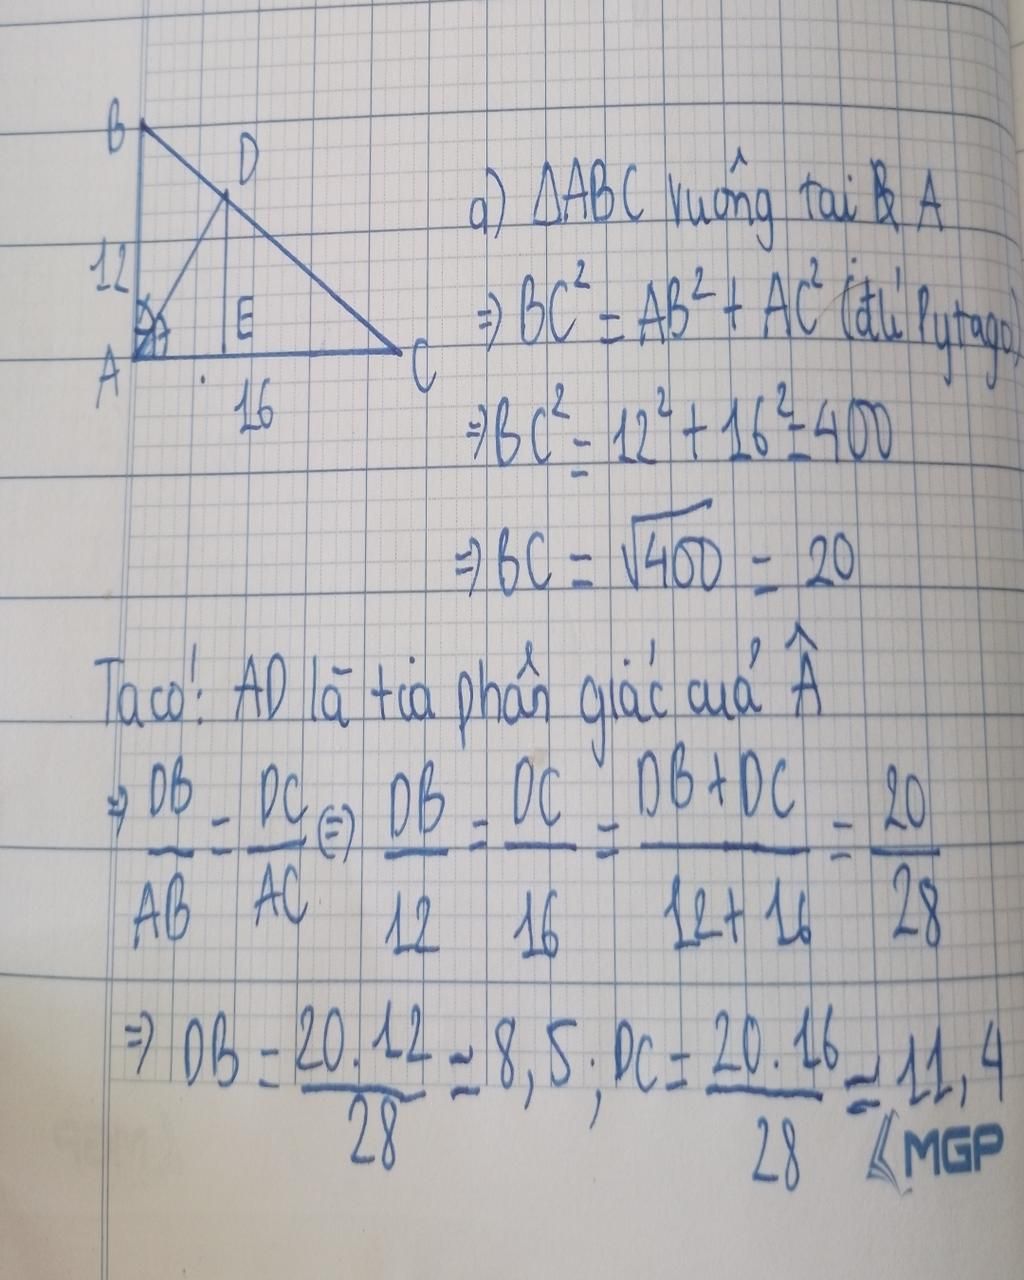 B
D
12
E
A
C
16
a) ΔABC vuông tại A
⇒ BC² = AB² + AC² (đ/l Pytago)
⇒ BC² = 12² + 16² = 400
⇒ BC = √400 = 20
Ta có: AD là tia phân giác của Â
⇒ DB/AB = DC/AC ⇔ DB/12 = DC/16 = DB+DC/12+16 = 20/28
⇒ DB = 20.12/28 ≃ 8,5; DC = 20.16/28 ≃ 11,4
MGP